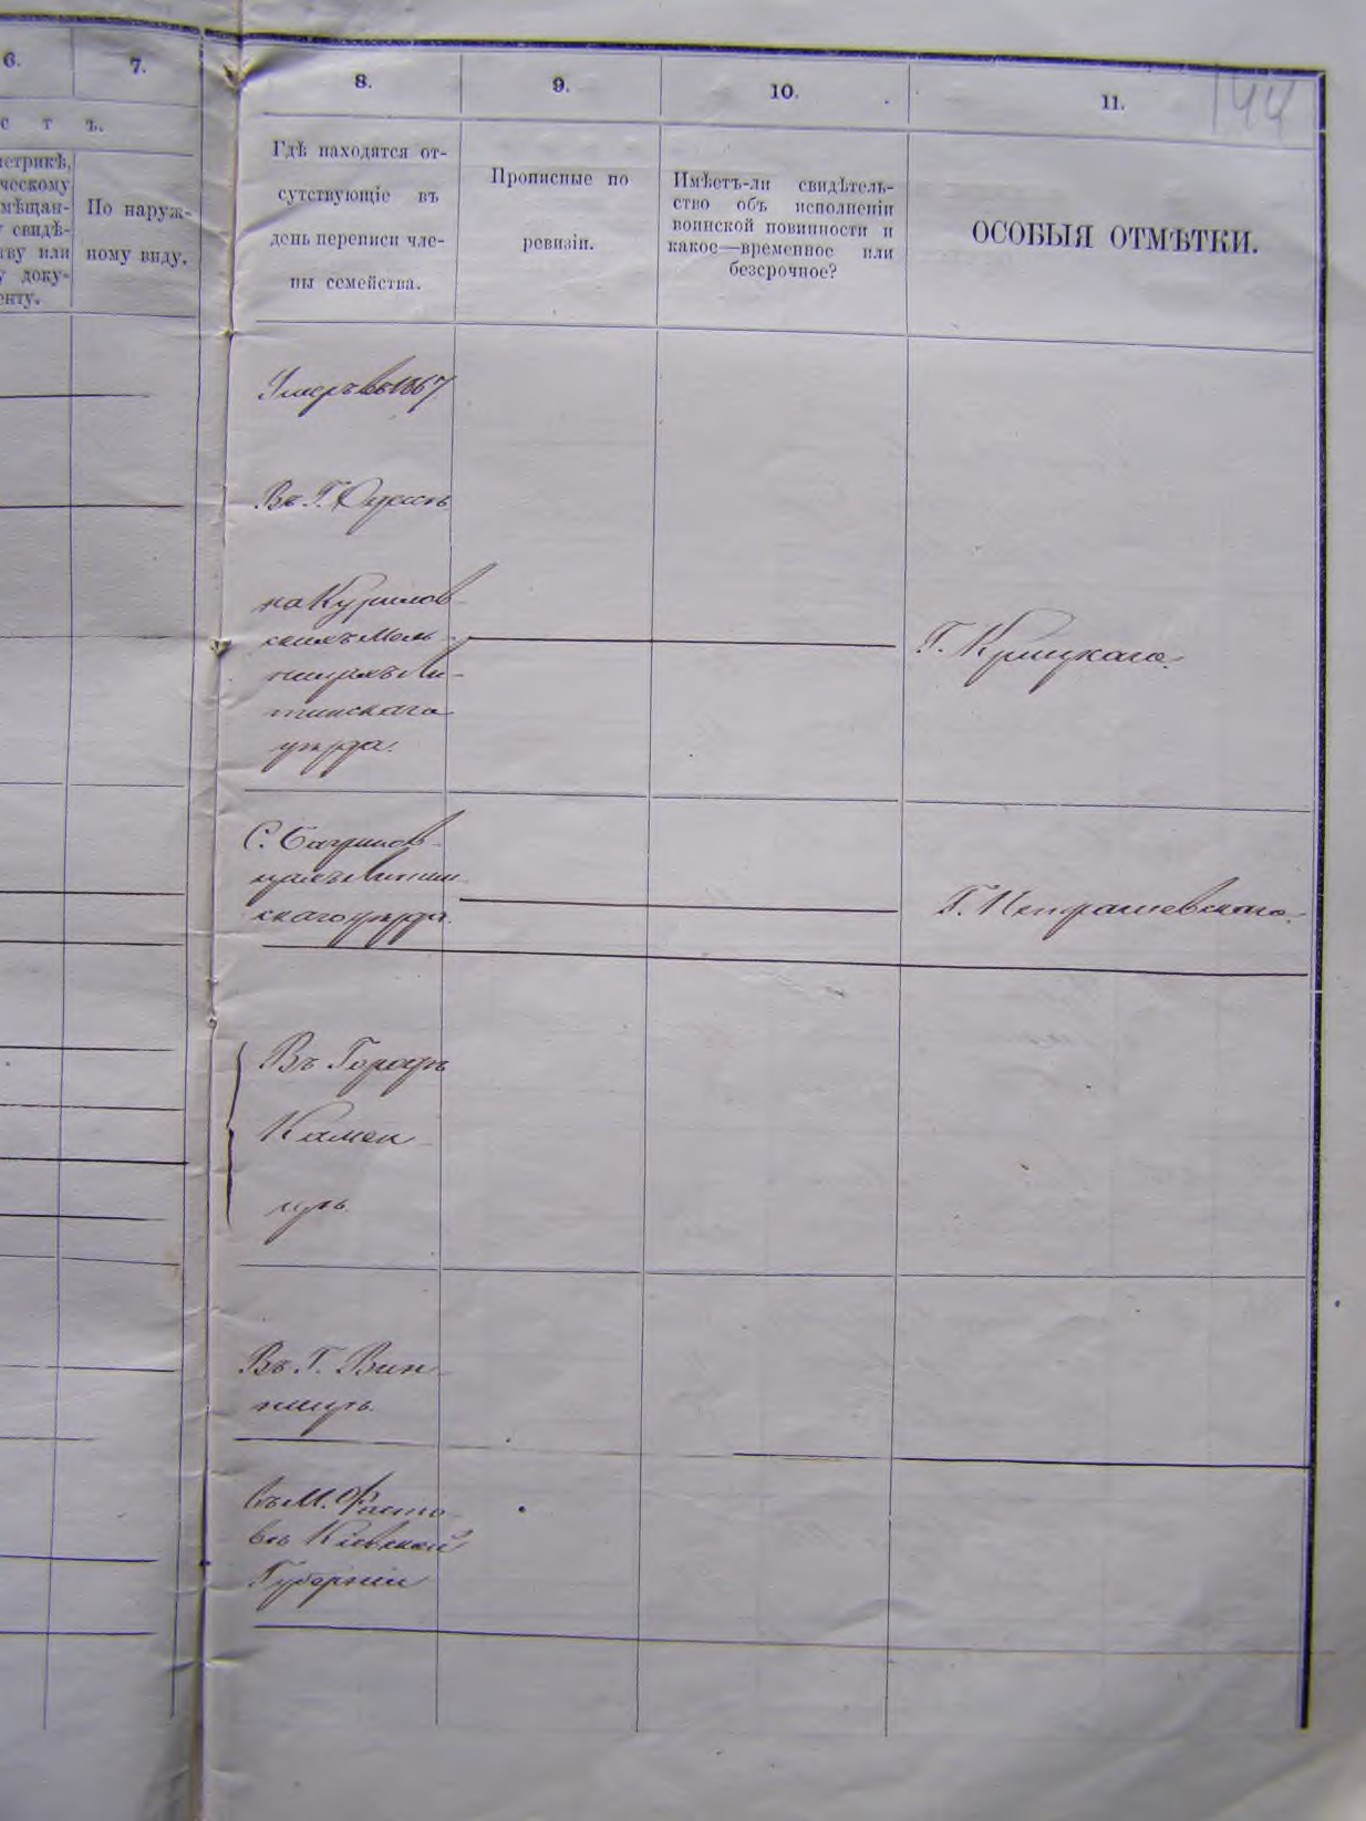 6.
7.
8.
9.
10.
11.
144
с т ъ.
метрикѣ,
ческому
мѣщан-
свидѣ-
тву или
у доку-
енту.
По наруж-
ному виду.
Гдѣ находятся от-
сутствующіе въ
день переписи чле-
ны семейства.
Прописные по
ревизіи.
Имѣетъ-ли свидѣтель-
ство объ исполненіи
воинской повинности и
какое—временное или
безсрочное?
ОСОБЫЯ ОТМѢТКИ.
Умеръ въ 1867
Въ Г. Одессѣ
на Курилов-
скихъ Мель-
ницахъ Ли-
тинскаго
уѣзда.
Г. Крицкаго.
С. Багринов-
цахъ Литин
скаго уѣзда.
Въ Городѣ
Камен
цѣ.
Въ Г. Вин-
ницѣ.
въ М. Фасто-
вѣ Кіевской
Губерніи